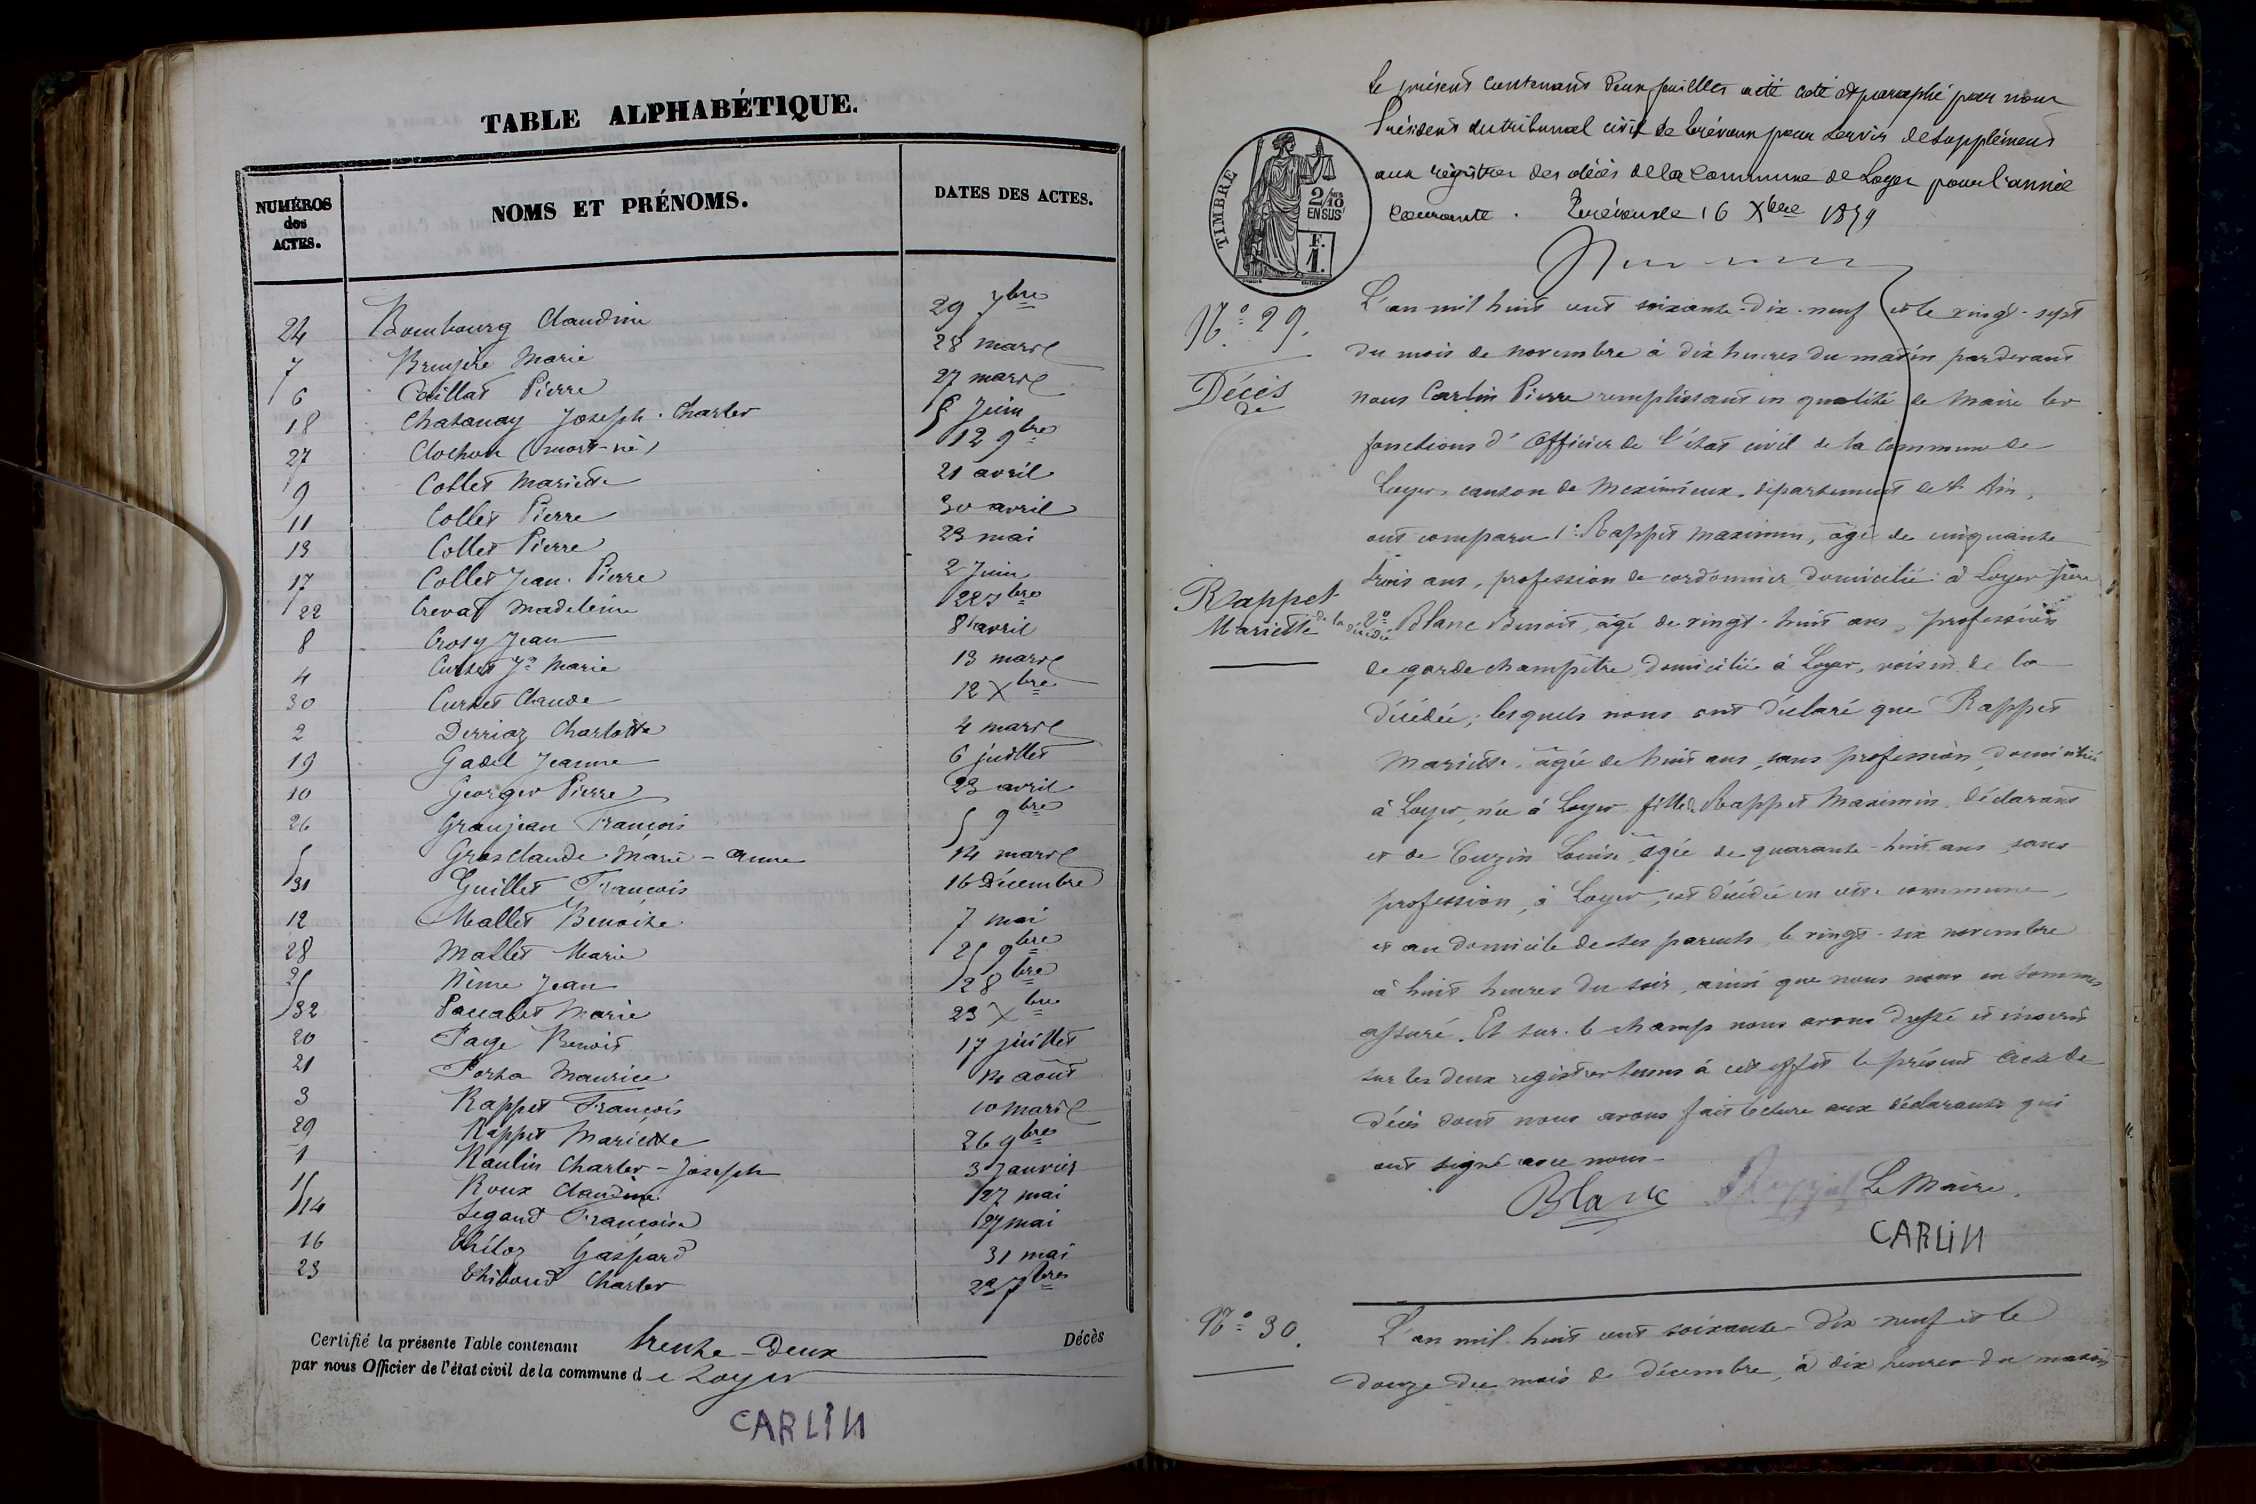 TABLE ALPHABÉTIQUE.
NUMÉROS des ACTES. NOMS ET PRÉNOMS. DATES DES ACTES.
24 Bombourg Claudine 29 7bre
7 Bruyère Marie 28 mars
6 Caillat Pierre 27 mars
18 Chatanay Joseph-Charles 5 Juin
27 Clochon (mort-né) 12 9bre
9 Collet Mariette 21 avril
11 Collet Pierre 30 avril
13 Collet Pierre 23 mai
17 Collet Jean-Pierre 2 Juin
22 Crevat Madeleine 22 7bre
8 Crosy Jean 8 avril
4 Curtet Marie 13 mars
30 Curtet Claude 12 Xbre
2 Derriaz Charlotte 4 mars
19 Gadel Jeanne 6 juillet
10 Georges Pierre 23 avril
26 Granjean François 5 9bre
5 Grosclaude Marie-Anne 14 mars
31 Guillet François 16 Décembre
12 Mallet Benoite 7 mai
28 Mallet Marie 25 9bre
25 Nême Jean 28 bre
32 Pascalet Marie 23 Xbre
20 Page Benoit 17 juillet
21 Porta Maurice 14 août
3 Rappet François 10 mars
29 Rappet Mariette 26 9bre
1 Raulin Charles-Joseph 3 Janvier
15 Roux Claudine 27 mai
14 Segaud Françoise 27 mai
16 Gaspard 31 mai
23 Thiboud Charles 23 7bre
Certifié la présente Table contenant trente-deux Décès
par nous Officier de l'état civil de la commune de Loyes
CARLIN
Le présent contenant deux feuilles a été coté et paraphé par nous
Président du tribunal civil de Trévoux pour servir de supplément
aux registres des décès de la Commune de Loyes pour l'année
courante. Trévoux le 16 Xbre 1879
TIMBRE
2/10
EN SUS
F.
1.
N° 29.
Décès
de
Rappet
Mariette
de la décédée
L'an mil huit cent soixante-dix-neuf et le vingt-sept
du mois de novembre à dix heures du matin pardevant
nous Carlin Pierre remplissant en qualité de Maire les
fonctions d'Officier de l'état civil de la commune de
Loyes, canton de Meximieux, département de l'Ain,
ont comparu 1° Rappet Maximin, âgé de cinquante
trois ans, profession de cordonnier domicilié à Loyes père
2° Blanc Benoit, âgé de vingt-huit ans, profession
de garde champêtre domicilié à Loyes, voisin de la
décédée; lesquels nous ont déclaré que Rappet
Mariette, âgée de huit ans, sans profession, domiciliée
à Loyes, née à Loyes fille de Rappet Maximin, déclarant
et de Cuzin Louise âgée de quarante-huit ans, sans
profession, à Loyes, est décédée en cette commune,
et au domicile de ses parents le vingt-six novembre
à huit heures du soir, ainsi que nous nous en sommes
assuré. Et sur-le-champ nous avons dressé et inscrit
sur les deux registres tenus à cet effet le présent acte de
décès dont nous avons fait lecture aux déclarants qui
ont signé avec nous.
Blanc Rappet Le Maire.
CARLIN
N° 30.
L'an mil huit cent soixante-dix-neuf et le
douze du mois de décembre, à dix heures du matin